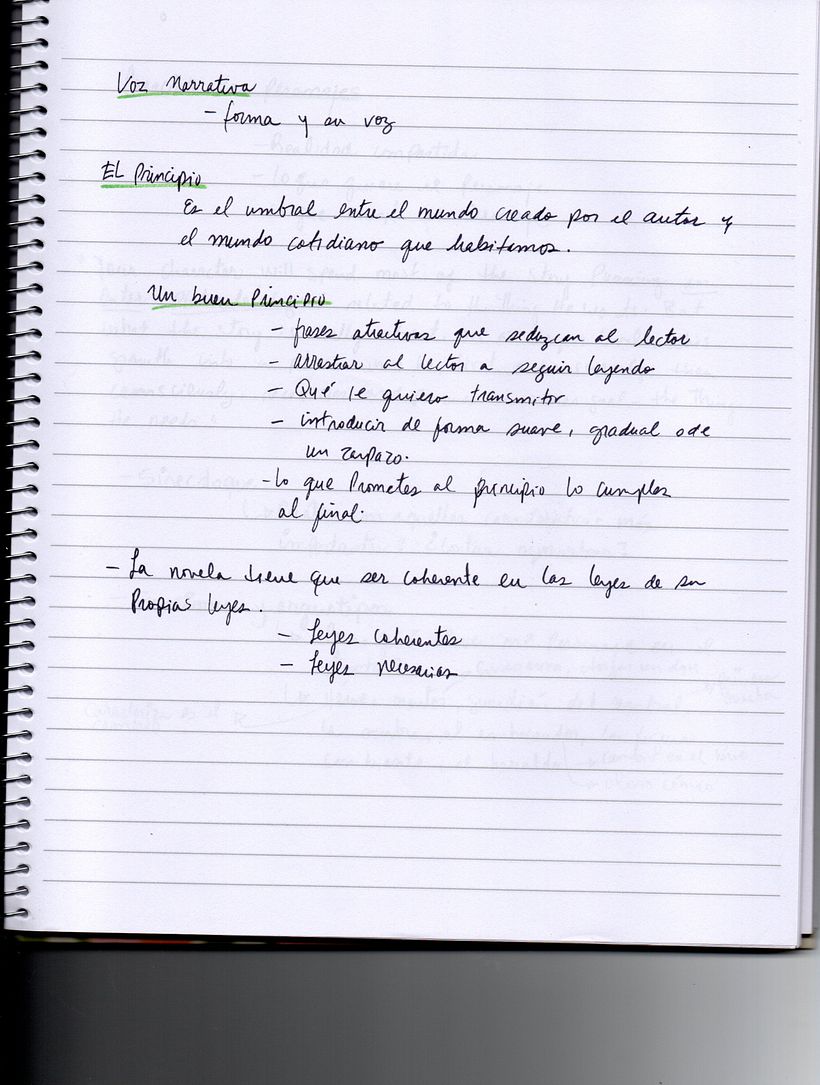 Voz Narrativa
- forma y su voz
EL Principio
Es el umbral entre el mundo creado por el autor y
el mundo cotidiano que habitamos.
Un buen Principio
- frases atractivas que seduzcan al lector
- arrastrar al lector a seguir leyendo
- Qué le quiero transmitir
- introducir de forma suave, gradual o de
un zarpazo.
- lo que Prometes al principio lo cumples
al final.
- La novela tiene que ser coherente en las leyes de su
Propias leyes.
- Leyes coherentes
- Leyes necesarias